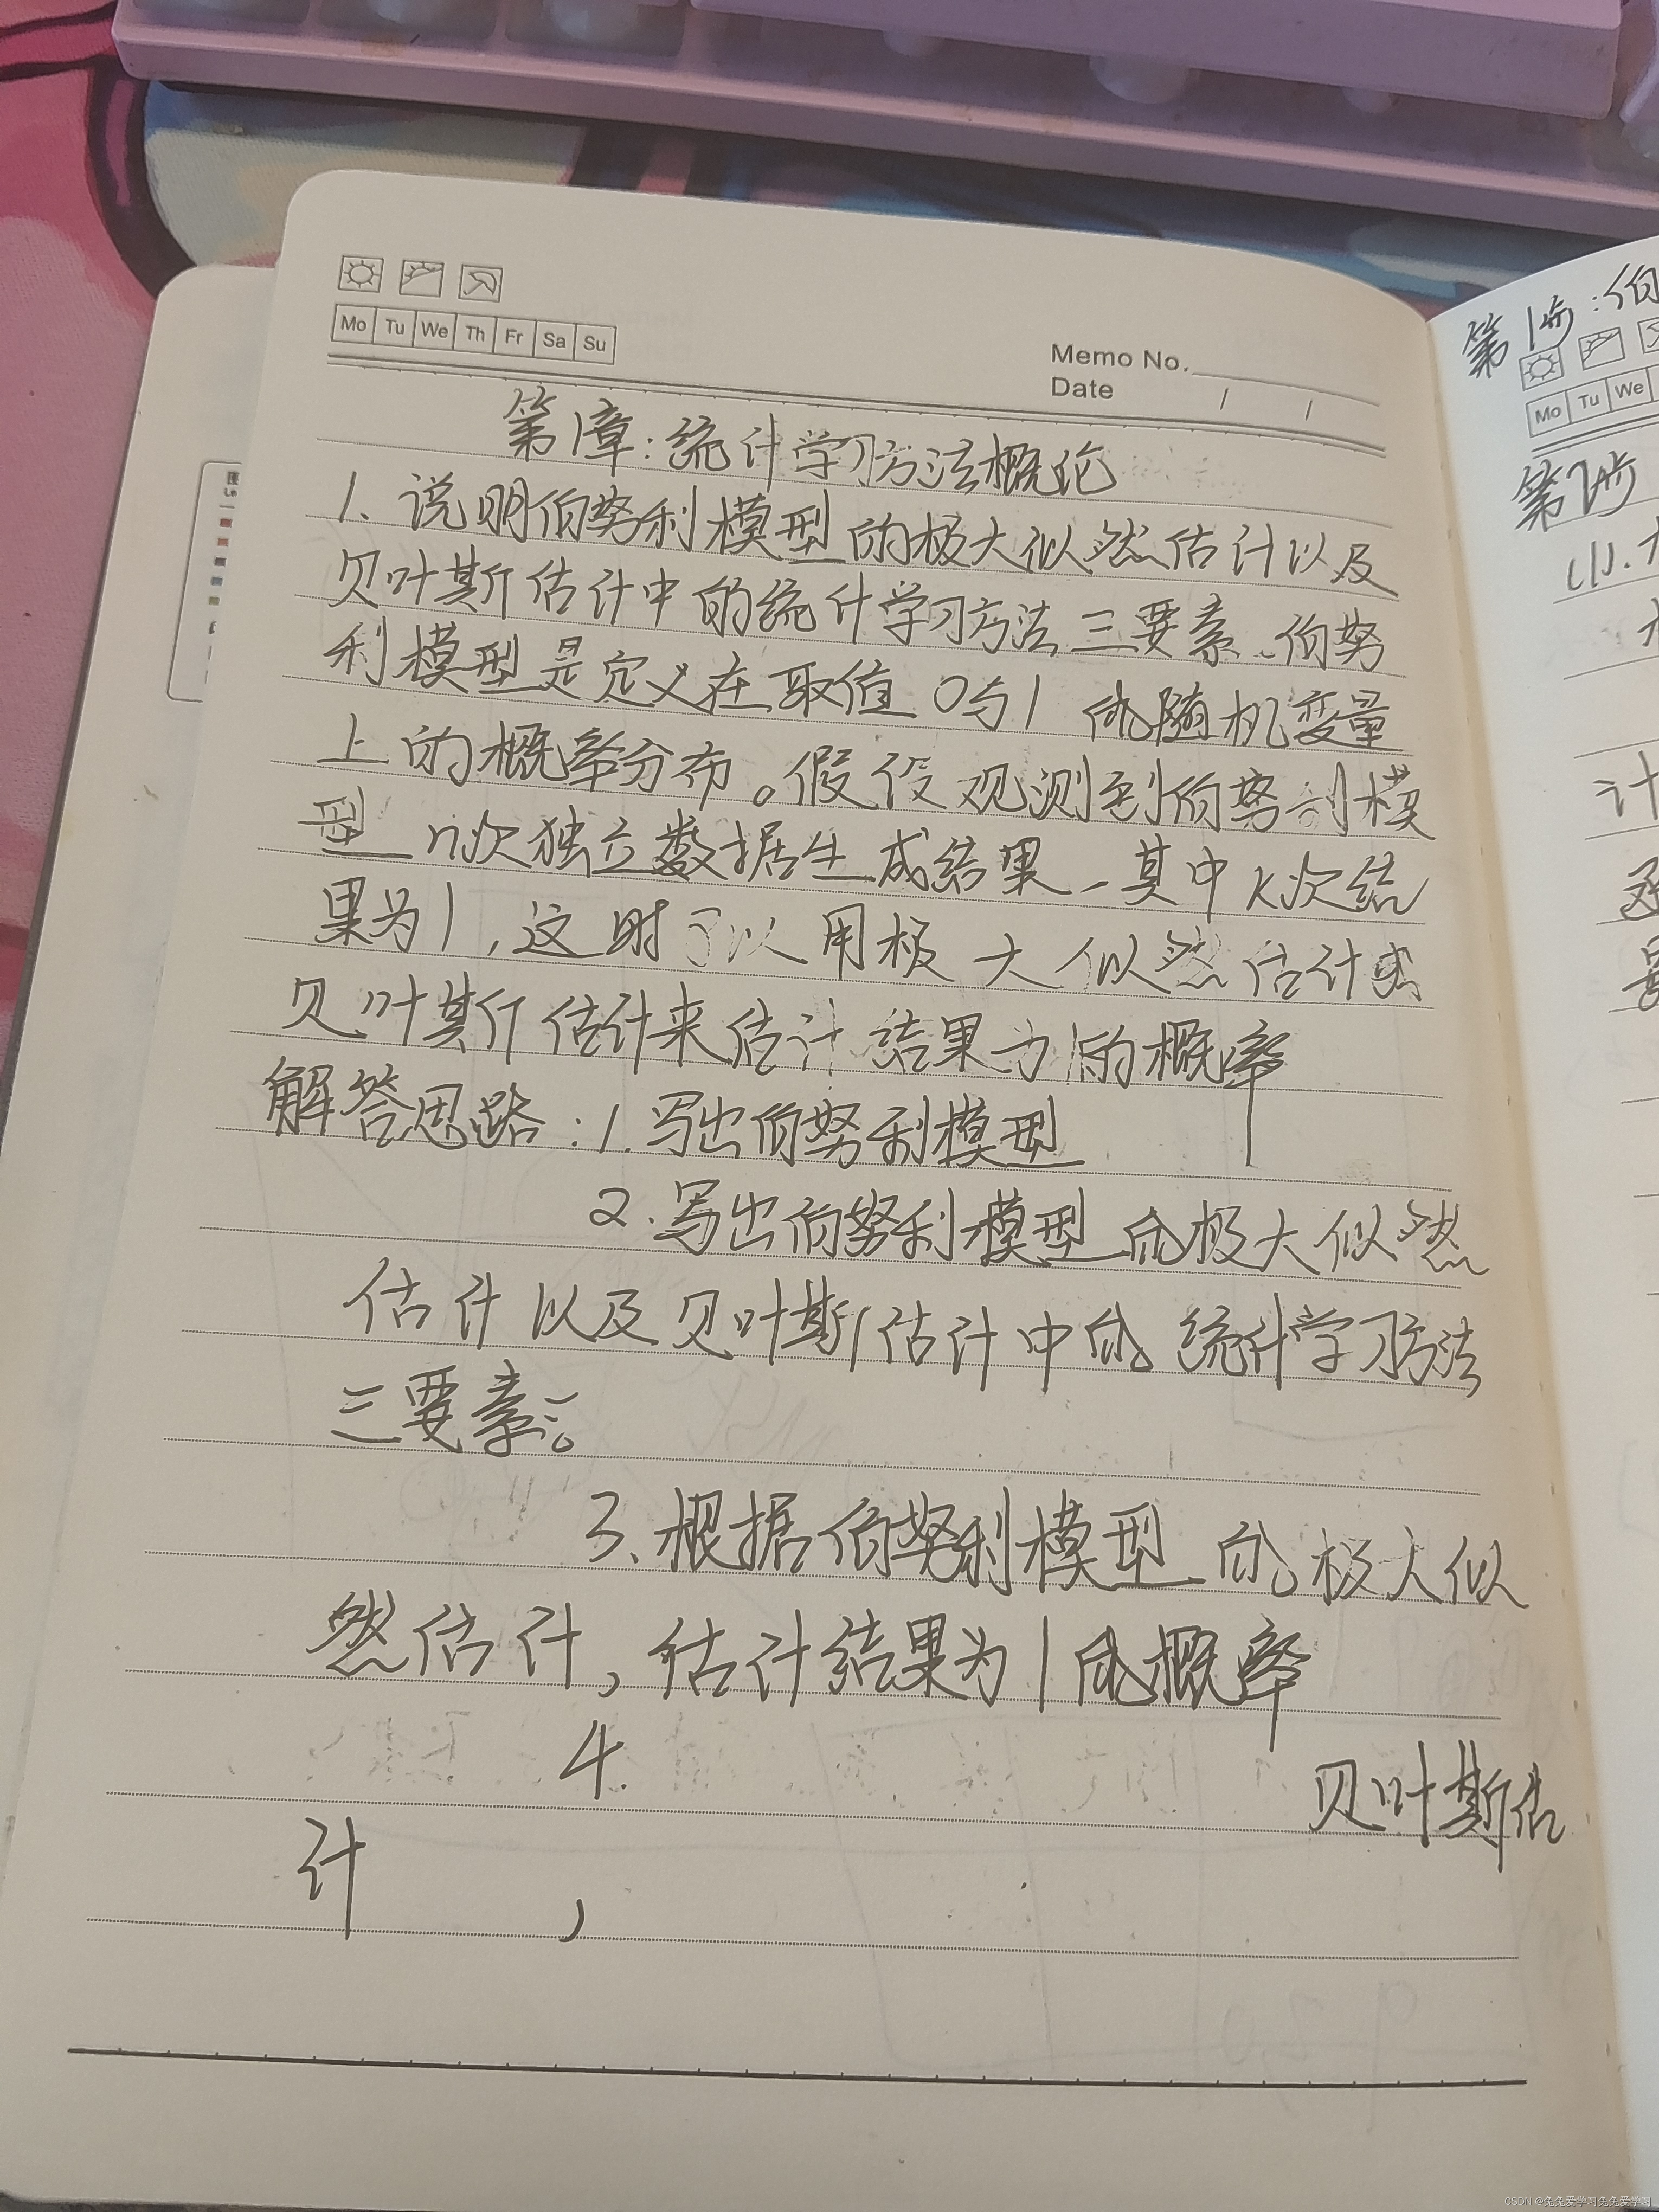 Mo Tu We Th Fr Sa Su
Memo No.
Date / /
第1章:统计学习方法概论
1. 说明伯努利模型的极大似然估计以及
贝叶斯估计中的统计学习方法三要素、伯努
利模型是定义在取值0与1的随机变量
上的概率分布。假设观测到伯努利模
型n次独立数据生成结果,其中k次结
果为1,这时可以用极大似然估计或
贝叶斯估计来估计结果为1的概率
解答思路:1.写出伯努利模型
2.写出伯努利模型的极大似然
估计以及贝叶斯估计中的统计学习方法
三要素。
3、根据伯努利模型的极大似
然估计,估计结果为1的概率
4. 贝叶斯估
计 ,
第1步:伯
Mo Tu We
第2步
(1).
计
CSDN @兔兔爱学习兔兔爱学习